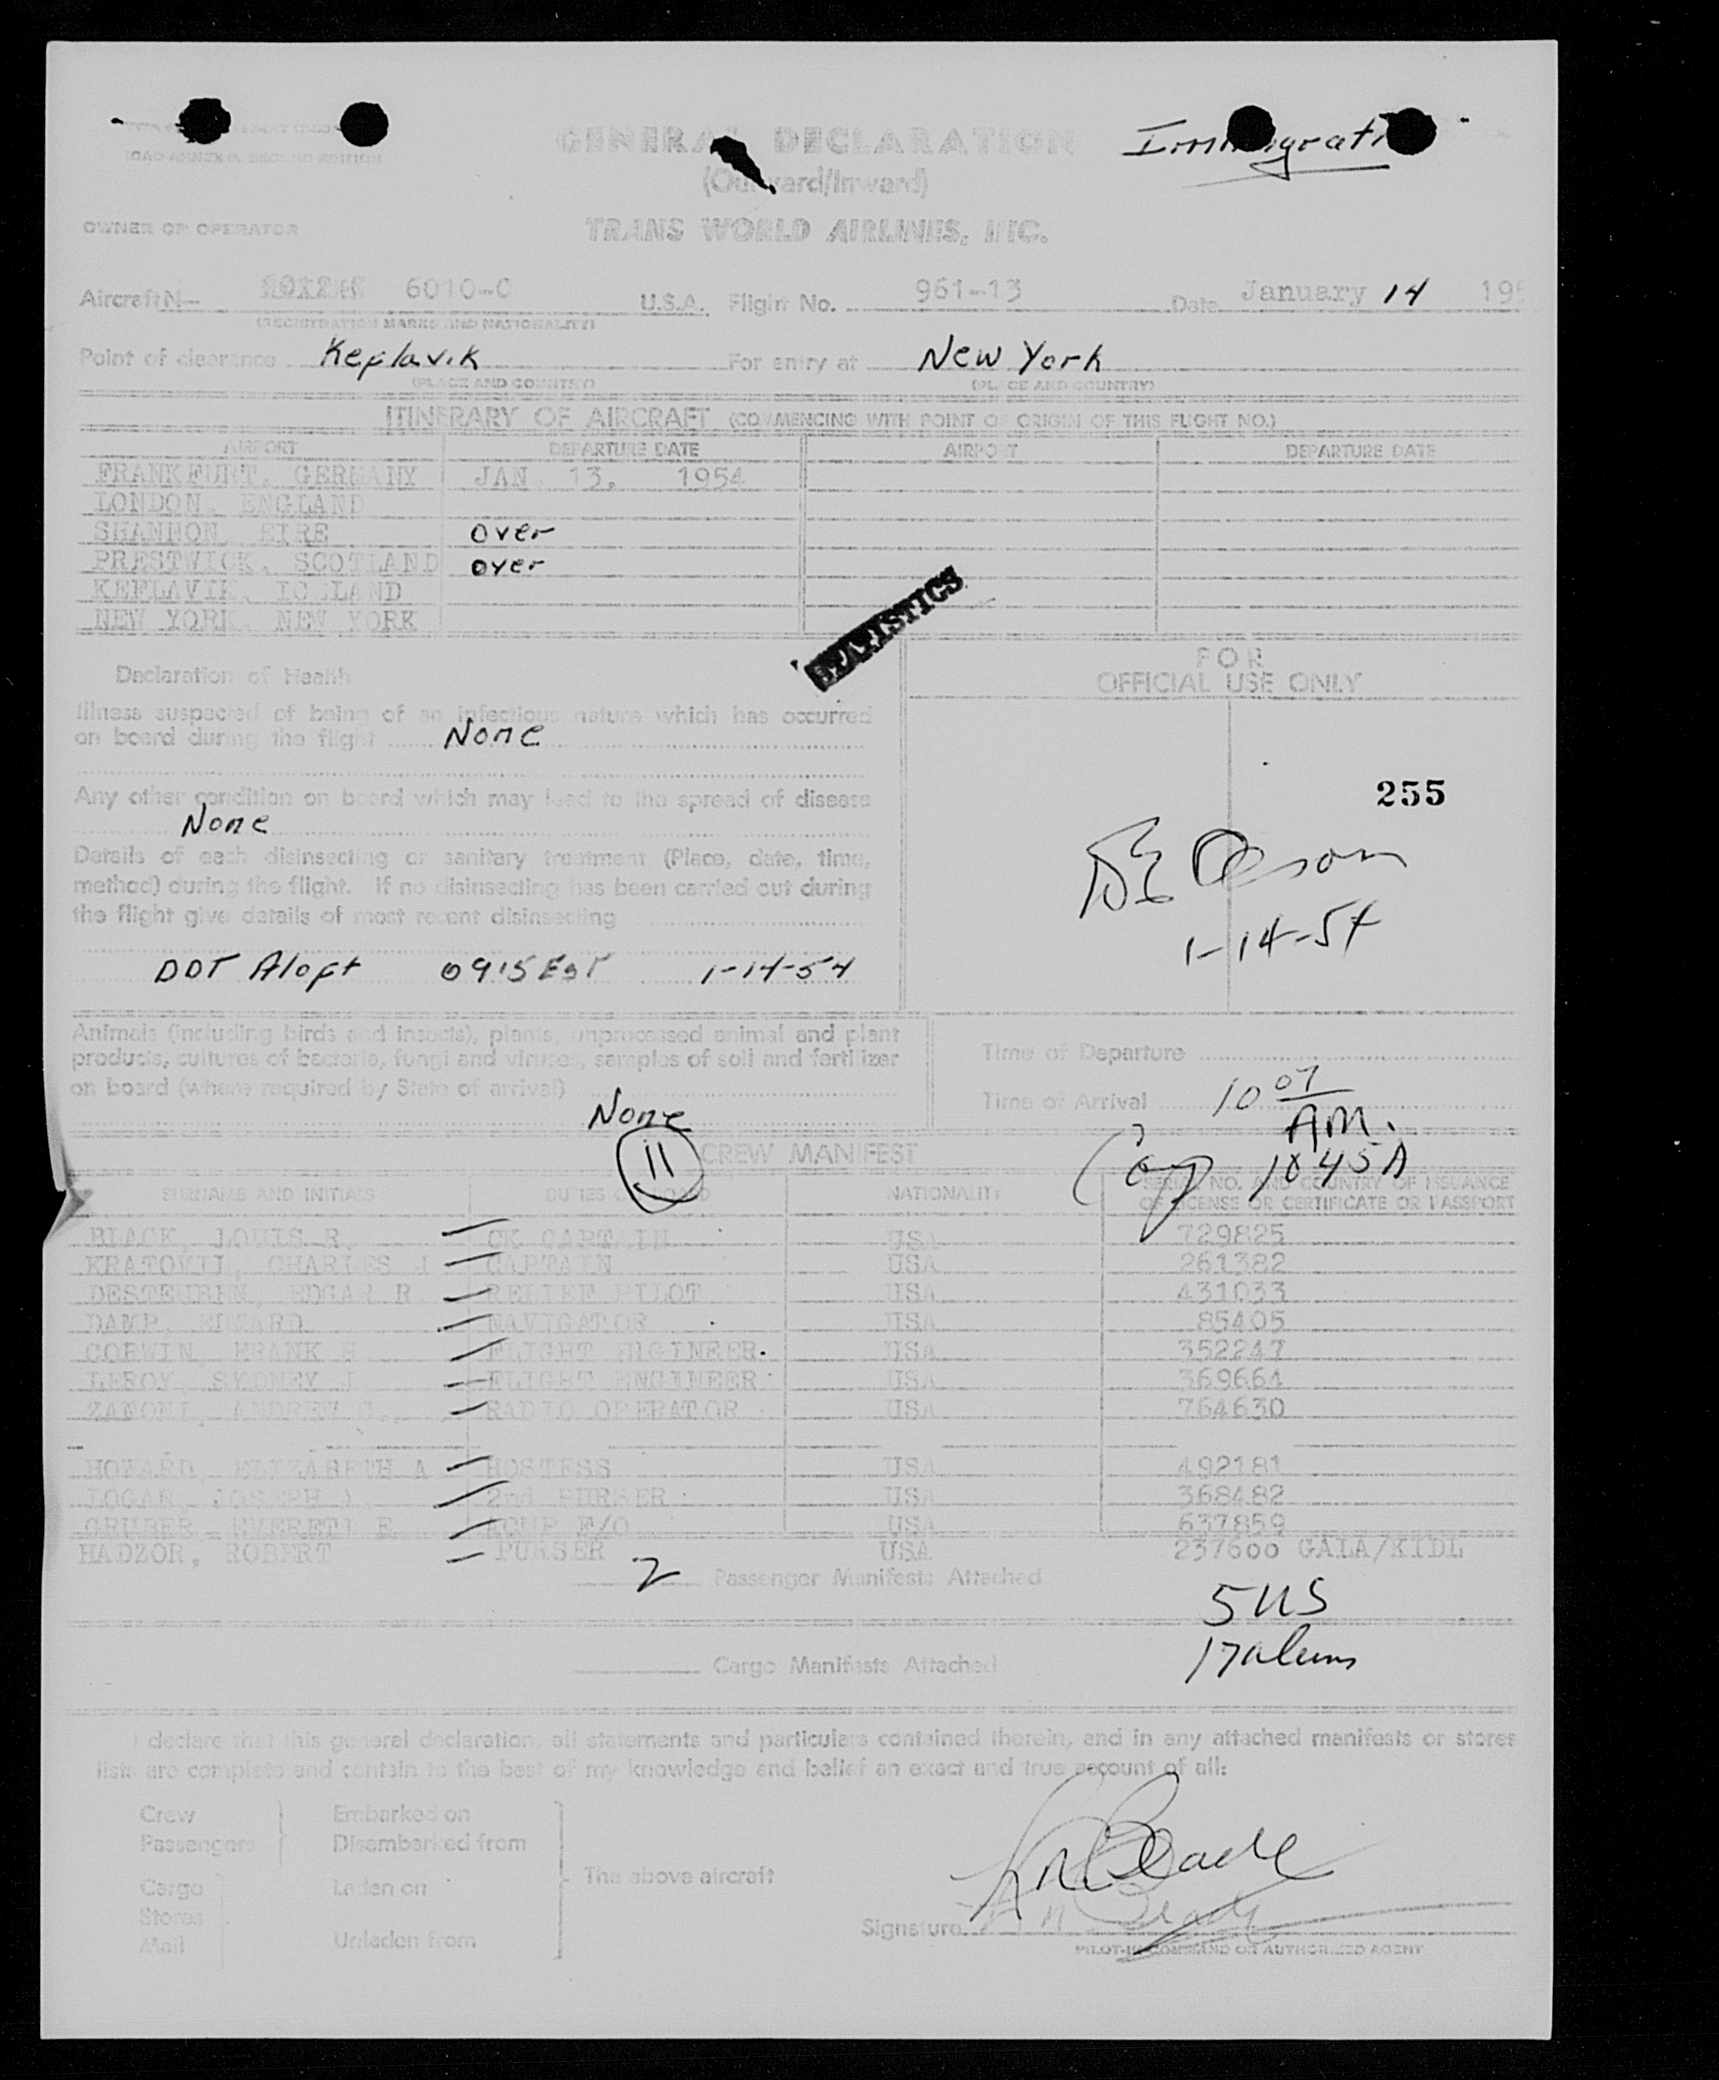 Immigrati
ICAO ANNEX 9, SECOND EDITION
GENERAL DECLARATION
(Outward/Inward)
OWNER OR OPERATOR TRANS WORLD AIRLINES, INC.
Aircraft N- 6010-C U.S.A. Flight No. 961-13 Date January 14 195
(REGISTRATION MARKS AND NATIONALITY)
Point of clearance Keflavik For entry at New York
(PLACE AND COUNTRY) (PLACE AND COUNTRY)
ITINERARY OF AIRCRAFT (COMMENCING WITH POINT OF ORIGIN OF THIS FLIGHT NO.)
AIRPORT DEPARTURE DATE AIRPORT DEPARTURE DATE
FRANKFURT, GERMANY JAN 13, 1954
LONDON, ENGLAND
SHANNON, EIRE over
PRESTWICK, SCOTLAND over
KEFLAVIK, ICELAND
NEW YORK, NEW YORK
STATISTICS
Declaration of Health
FOR
OFFICIAL USE ONLY
Illness suspected of being of an infectious nature which has occurred
on board during the flight None
Any other condition on board which may lead to the spread of disease
None
255
Details of each disinsecting or sanitary treatment (Place, date, time,
method) during the flight. If no disinsecting has been carried out during
the flight give details of most recent disinsecting
1-14-54
DDT Aloft 0915 EST 1-14-54
Animals (including birds and insects), plants, unprocessed animal and plant
products, cultures of bacteria, fungi and viruses, samples of soil and fertilizer
on board (where required by State of arrival)
None
Time of Departure
Time of Arrival 10 07 AM.
1045A
11 CREW MANIFEST
SURNAME AND INITIALS DUTIES ON BOARD NATIONALITY SERIAL NO. AND COUNTRY OF ISSUANCE
OF LICENSE OR CERTIFICATE OR PASSPORT
BLACK, LOUIS R. CK CAPTAIN USA 729825
KRATOVIL, CHARLES J CAPTAIN USA 261382
DESTEUBEN, EDGAR R RELIEF PILOT USA 431033
DAMP, EDWARD NAVIGATOR USA 85405
CORWIN, FRANK H FLIGHT ENGINEER USA 352247
LEROY, SYDNEY J FLIGHT ENGINEER USA 369664
ZAMONI, ANDREW G., RADIO OPERATOR USA 764630
HOWARD, ELIZABETH A HOSTESS USA 492181
LOGAN, JOSEPH A. 2nd PURSER USA 368482
GRUBER, EVERETT E F/O USA 637859
HADZOR, ROBERT PURSER USA 237600 GALA/KIDL
2 Passenger Manifests Attached
5 US
17 aliens
Cargo Manifests Attached
I declare that this general declaration, all statements and particulars contained therein, and in any attached manifests or stores
lists are complete and contain to the best of my knowledge and belief an exact and true account of all:
Crew Embarked on
Passengers Disembarked from
The above aircraft
Cargo Laden on
Stores
Mail Unladen from
Signature
PILOT-IN-COMMAND OR AUTHORIZED AGENT